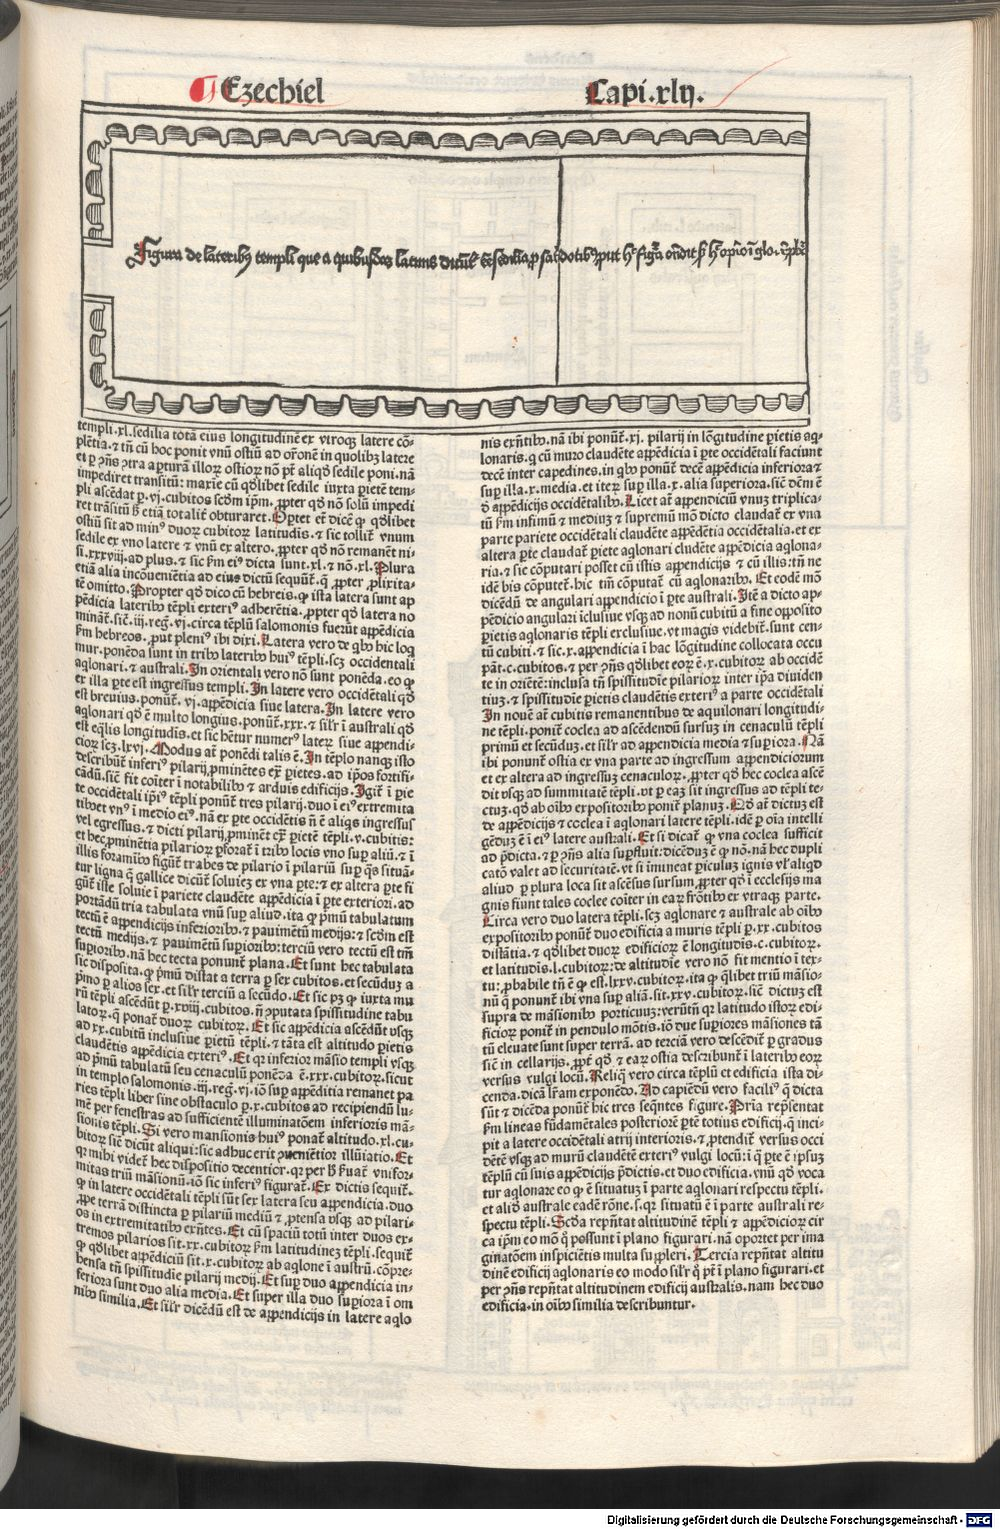 Ezechiel
Capi.xlij.
Figura de laterib9 templi que a quibusdaꝫ latinis dicūt̄ ēē sedilia ꝓ sac̄dotib9 ꝓut hec figura
templi.xl.sedilia totā eius longitudinē ex vtroqꝫ latere cō⸗
plētia.⁊ tn̄ cū hoc ponit vnū ostiū ad or̄onē in quolibꝫ latere
et ꝑ ꝯn̄s ꝯtra aꝑturā illoꝝ ostioꝝ nō pt̄ aliqd̓ sedile poni.nā
impediret transitū: maxīe cū qd̓libet sedile iuxta ꝑietē tem⸗
pli ascēdat ꝑ.vj.cubitos scd̓m ip̄m.ꝓpter qd̓ nō solū impedi
ret trāsitū sꝫ etiā totalit̄ obturaret.Oꝑtet em̄ dicē ꝙ qd̓libet
ostiū sit ad min9 duoꝝ cubitoꝝ latitudis.⁊ sic tollit̄ vnum
sedile ex vno latere ⁊ vnū ex altero.ꝓpter qd̓ nō remanēt ni⸗
si.xxxviij.ad plus.⁊ sic km̄ ei9 dicta sunt.xl.⁊ nō.xl.Plura
etiā alia incōueniētia ad eius dictū sequūt̄.q̄ ꝓpter ꝓlixita⸗
tē omitto.Propter qd̓ dico cū hebreis.ꝙ ista latera sunt ap
pēdicia laterib9 tēpli exteri9 adherētia.ꝓpter qd̓ latera no
minat̄.sic̄.iij.reg̓.vj.circa tēplū salomonis fuerūt aꝑpēdicia
km̄ hebreos.ꝓut pleni9 ibi dixi.Latera vero de qb9 hic loq̄
mur.ponēda sunt in trib9 laterib9 hui9 tēpli.scꝫ occidentali
aqlonari.⁊ australi.In orientali vero nō sunt ponēda.eo ꝙ
ex illa ꝑte est ingressus templi.In latere vero occidētali qd̓
est breuius.ponūt̄.vj.aꝑpēdicia siue latera.In latere vero
aqlonari qd̓ ē multo longius.ponūt̄.xxx.⁊ silr̄ ī australi qd̓
est eq̄lis longitudis.et sic hētur numer9 lateꝝ siue aꝑpendi⸗
cioꝝ scꝫ.lxvj.Modus at̄ ponēdi talis ē.In tēplo nanqꝫ isto
describūt̄ inferi9 pilarij ꝓminētes ex ꝑietes.ad ip̄os fortifi⸗
cādū.sic̄ fit coīter ī notabilib9 ⁊ arduis edificijs.Igit̄ ī ꝑie
te occidētali ip̄i9 tēpli ponūt̄ tres pilarij.duo ī ei9 extremita
tib9 et vn9 ī medio ei9.nā ex ꝑte occidētis n̄ ē aliqs ingressus
vel egressus.⁊ dicti pilarij ꝓminēt ex ꝑietē tēpli.v.cubitis:
et hec ꝓminētia pilarioꝝ ꝑforat̄ ī trib9 locis vno suꝑ aliū.⁊ ī
illis foramib9 figūt̄ trabes de pilario ī pilariū suꝑ qs̄ situā⸗
tur ligna q̄ gallice dicūt̄ soluieꝫ ex vna ꝑte:⁊ ex altera ꝑte fi
gūt̄ iste soluie ī pariete claudēte aꝑpēdicia ī ꝑte exteriori.ad
portādū tria tabulata vnū suꝑ aliud.ita ꝙ pⁱmū tabulatum
tectū ē aꝑpendicijs inferiorib9.⁊ pauimētū medijs:⁊ scd̓m est
tectū medijs.⁊ pauimētū suꝑiorib9:terciū vero tectū est tm̄
suꝑiorib9.nā hec tecta ponunt̄ plana.Et sunt hec tabulata
sic disposita.ꝙ pⁱmū distat a terra ꝑ sex cubitos.et secūduꝫ a
pⁱmo ꝑ alios sex.et silr̄ terciū a secūdo.Et sic pꝫ ꝙ iuxta mu
rū tēpli ascēdūt ꝑ.xviij.cubitos.n̄ ꝯputata spissitudine tabu
latoꝝ.q̄ ponat̄ duoꝝ cubitoꝝ.Et sic aꝑpēdicia ascēdūt vsqꝫ
ad xx.cubitū inclusiue ꝑietū tēpli.⁊ tāta est altitudo ꝑietis
claudētis aꝑpēdicia exteri9.Et qꝛ inferior māsio templi vsqꝫ
ad pⁱmū tabulatū seu cenaculū ponēda ē.xxx.cubitoꝝ.sicut
in templo salomonis.iij.reg̓.vj.iō suꝑ aꝑpēditia remanet pa
ries tēpli liber sine obstaculo ꝑ.x.cubitos ad recipiendū lu⸗
mē per fenestras ad sufficientē illuminatōem inferioris mā⸗
sionis tēpli.Si vero mansionis hui9 ponat̄ altitudo.xl.cu⸗
bitoꝝ sic̄ dicūt aliqui:sic adhuc erit ꝯueniētior illūiatio.Et
qꝛ mihi videt̄ hec dispositio decentior.qꝛ per hͦ ſ̓uat̄ vnifor⸗
mitas triū māsionū.iō sic inferi9 figurat̄.Ex dictis sequit̄.
ꝙ in latere occidētali tēpli sūt sex latera seu aꝑpendicia.duo
ꝓpe terrā distincta ꝑ pilariū mediū ⁊ ꝓtensa vsqꝫ ad pilari⸗
os in extremitatib9 ex̄ntes.Et cū spaciū totū inter duos ex⸗
tremos pilarios sit.xx.cubitoꝝ km̄ latitudineꝫ tēpli.sequit̄
ꝙ qd̓libet aꝑpēdiciū sit.x.cubitoꝝ ab aqlone ī austrū.cōpre⸗
hensa tn̄ spissitudie pilarij medij.Et suꝑ duo aꝑpendicia in⸗
feriora sunt duo alia media.Et super illa duo suꝑiora ī om
nib9 similia.Et silr̄ dicēdū est de aꝑpendicijs in latere aqlo
nis ex̄ntib9.nā ibi ponūt̄.xj.pilarij in lōgitudine ꝑietis aq⸗
lonaris.q̄ cū muro claudēte aꝑpēdicia ī ꝑte occidētali faciunt
decē inter capedines.in qb9 ponūt̄ decē aꝑpēdicia inferiora ⁊
suꝑ illa.x.media.et iteꝝ suꝑ illa.x.alia superiora.sic̄ dc̄m ē
d̓ aꝑpēdicijs occidētalib9.Licet at̄ aꝑpendiciū vnuꝫ triplica⸗
tū km̄ infimū ⁊ mediuꝫ ⁊ supremū mō dicto claudat̄ ex vna
parte pariete occidētali claudēte aꝑpēdētia occidētalia.et ex
altera ꝑte claudat̄ ꝑiete aqlonari cludēte aꝑpēdicia aqlona⸗
ria.⁊ sic cōputari posset cū istis aꝑpendicijs ⁊ cū illis:tn̄ ne
idē bis cōputet̄.hic tm̄ cōputat̄ cū aqlonarib9.Et eodē mō
dicēdū de angulari aꝑpendicio ī ꝑte australi.Itē a dicto ap⸗
pēdicio angulari īclusiue vsqꝫ ad nonū cubitū a fine opposito
ꝑietis aqlonaris tēpli exclusiue.vt magis videbit̄.sunt cen⸗
tū cubiti.⁊ sic.x.aꝑpendicia ī hac lōgitudine collocata occu
pāt.c.cubitos.⁊ per ꝯn̄s qd̓libet eoꝝ ē.x.cubitoꝝ ab occidē
te in oriētē:inclusa tn̄ spissitudīe pilarioꝝ inter ip̄a diuiden
tiuꝫ.⁊ spissitudīe ꝑietis claudētis exteri9 a parte occidētali
In nouē at̄ cubitis remanentibus de aquilonari longitudi⸗
ne tēpli.ponit̄ coclea ad ascēdendū sursuꝫ in cenaculū tēpli
primū et secūduꝫ.et silr̄ ad aꝑpendicia media ⁊ suꝑiora.Nā
ibi ponunt̄ ostia ex vna parte ad ingressum aꝑpendiciorum
et ex altera ad ingressuꝫ cenaculoꝝ.ꝓpter qd̓ hec coclea ascē
dit vsqꝫ ad summitatē tēpli.vt ꝑ eaꝫ sit ingressus ad tēpli te⸗
ctuꝫ.qd̓ ab oīb9 expositorib9 ponit̄ planuꝫ.Qd̓ at̄ dictuꝫ est
de aꝑpēdicijs ⁊ coclea ī aqlonari latere tēpli.idē ꝑ oīa intelli
gēduꝫ ē ī ei9 latere australi.Et si dicat̄ ꝙ vna coclea sufficit
ad pⁱdicta.⁊ ꝑ ꝯn̄s alia suꝑfluit:dicēduꝫ ē ꝙ nō.nā hec dupli
catō valet ad securitatē.vt si īmineat ꝑiculuꝫ ignis vl̓ aliqd̓
aliud ꝑ plura loca sit ascēsus sursum.ꝓpter qd̓ ī ecclesijs ma
gnis fiunt tales coclee coīter in eaꝝ frōtib9 ex vtraqꝫ parte.
Circa vero duo latera tēpli.scꝫ aqlonare ⁊ australe ab oīb9
expositorib9 ponūt̄ duo edificia a muris tēpli ꝑ.xx.cubitos
distātia.⁊ qd̓libet duoꝝ edificioꝝ ē longitudīs.c.cubitoꝝ.
et latitudīs.l.cubitoꝝ:de altitudie vero nō fit mentio ī tex⸗
tu:ꝓbabile tn̄ ē ꝙ est.lxxv.cubitoꝝ.ita ꝙ qlibet triū māsio⸗
nū q̄ ponunt̄ ibi vna suꝑ aliā.sit.xxv.cubitoꝝ.sic̄ dictuꝫ est
supra de māsionib9 porticuuꝫ:verūtn̄ qꝛ latitudo istoꝝ edi⸗
ficioꝝ ponit̄ in pendulo mōtis.iō due suꝑiores māsiones tā
tū eleuate sunt super terrā.ad terciā vero descēdit̄ ꝑ gradus
sic̄ in cellarijs.ꝓpt̄ qd̓ ⁊ eaꝝ ostia describunt̄ ī laterib9 eoꝝ
versus vulgi locū.Reliq̄ vero circa tēplū et edificia ista di⸗
cenda.dicā lr̄am exponēdo.Ad capiēdū vero facili9 q̄ dicta
sūt ⁊ dicēda ponūt̄ hic tres seqn̄tes figure.Prīa rep̄sentat
km̄ lineas fūdamētales posteriorē ꝑtē totius edificij.q̄ inci⸗
pit a latere occidētali atrij interioris.⁊ ꝓtendit̄ versus occi
dētē vsqꝫ ad murū claudētē exteri9 vulgi locū:ī q̄ ꝑte ē ipsuꝫ
tēplū cū suis aꝑpēdicijs pⁱdictis.et duo edificia.vnū qd̓ voca
tur aqlonare eo ꝙ ē situatuꝫ ī parte aqlonari respectu tēpli.
et aliud̓ australe eadē rōne.s.qꝛ situatū ē ī parte australi re⸗
spectu tēpli.Scd̓a repn̄tat altitudinē tēpli ⁊ aꝑpēdicioꝝ cir
ca ip̄m eo mō q̄ possunt ī plano figurari.nā oportet per ima
ginatōem inspiciētis multa suppleri.Tercia repn̄tat altitu
dinē edificij aqlonaris eo modo silr̄ q̄ pt̄ ī plano figurari.et
per ꝯn̄s repn̄tat altitudinem edificij australis.nam hec duo
edificia.in oīb9 similia describuntur.
Digitalisierung gefördert durch die Deutsche Forschungsgemeinschaft - DFG